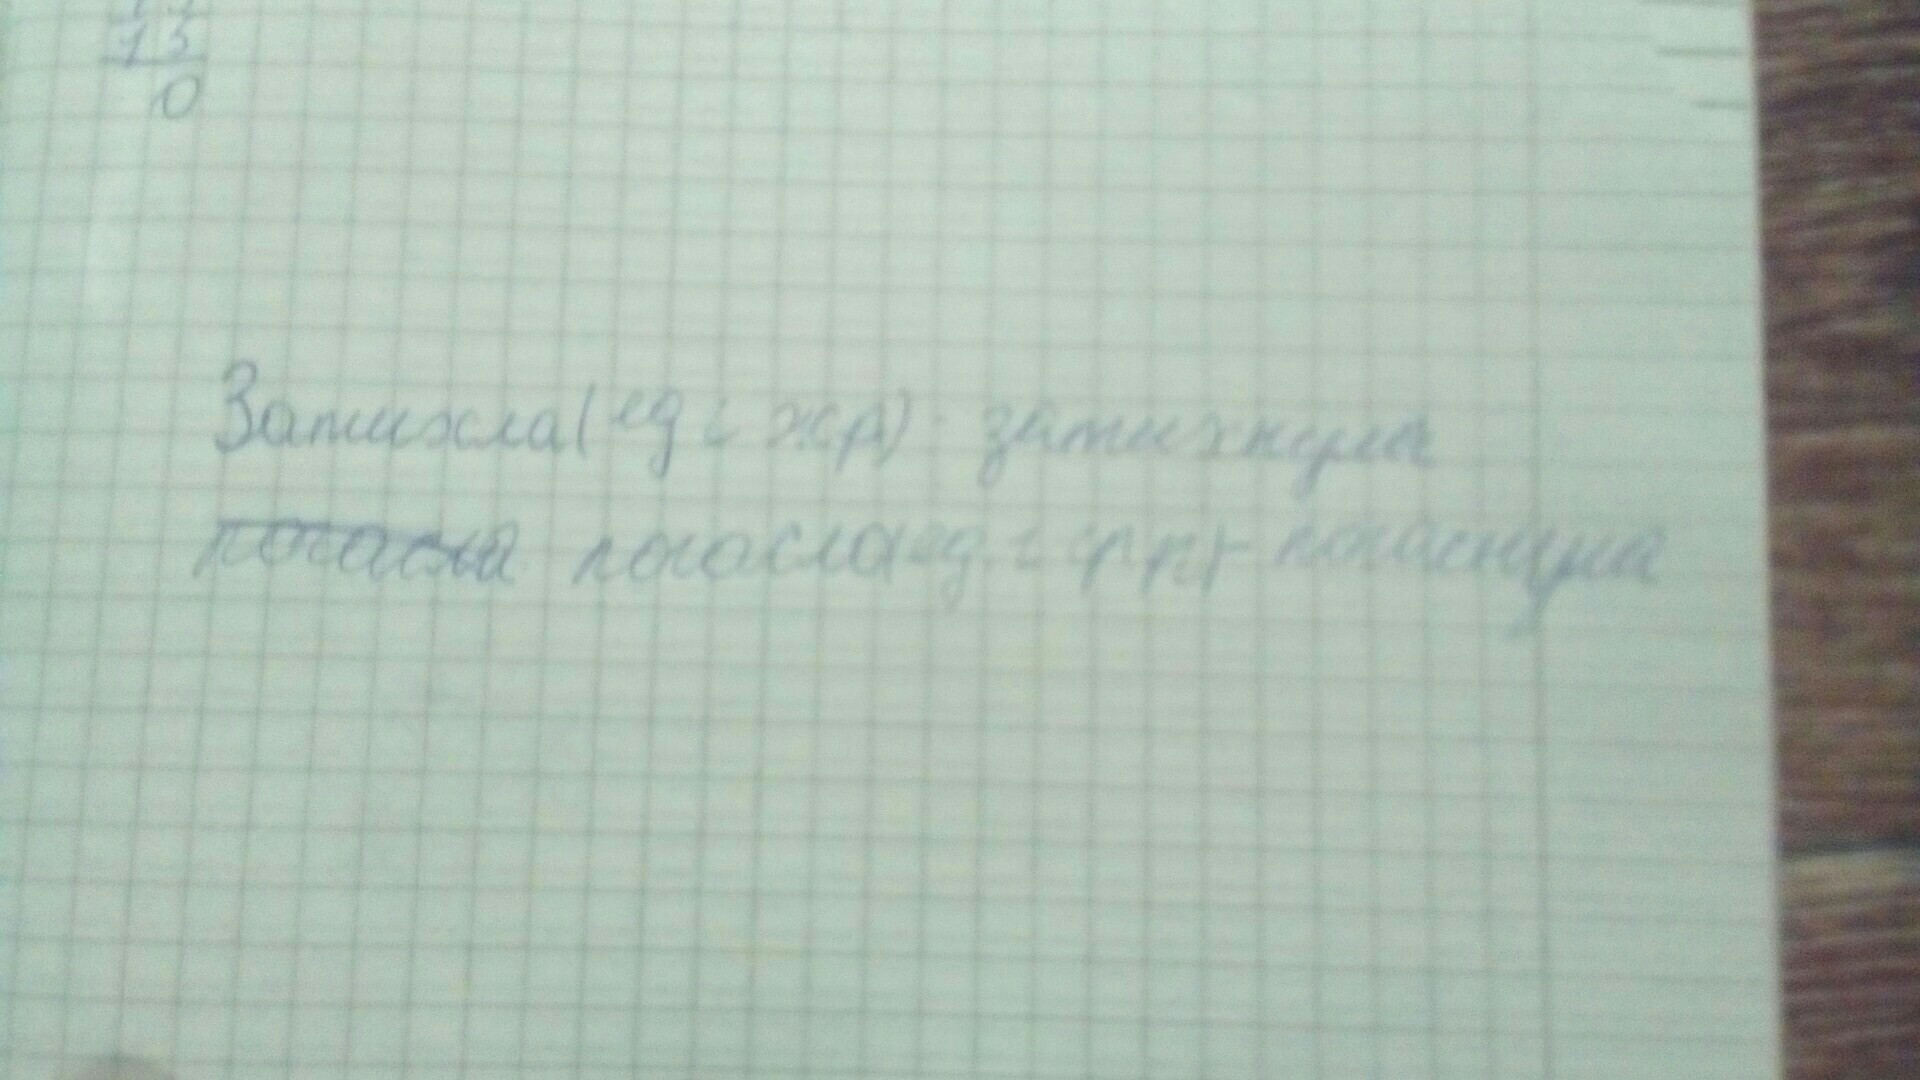 13
0
Затихла (ед ч ж р) - затихнула
погасла погасла (ед ч ж р) - погаснула